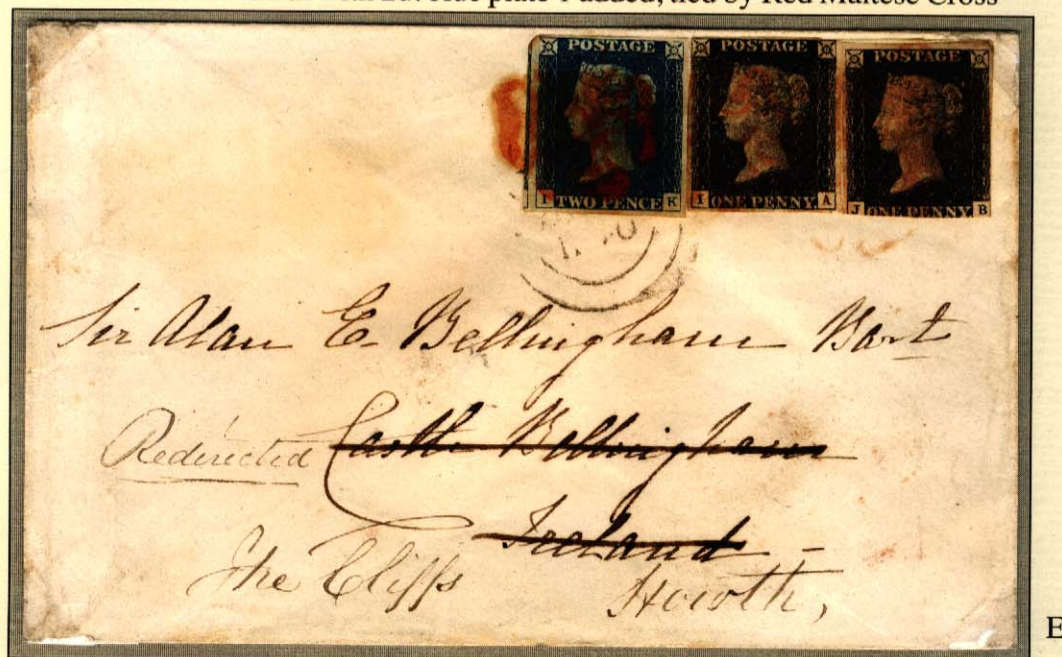 added, tied by Red Maltese Cross
POSTAGE POSTAGE POSTAGE
I TWO PENCE K I ONE PENNY A J ONE PENNY B
Sir Alan E. Bellingham Bart
Redirected Castle Bellingham
Ireland
The Cliffs Howth,
E